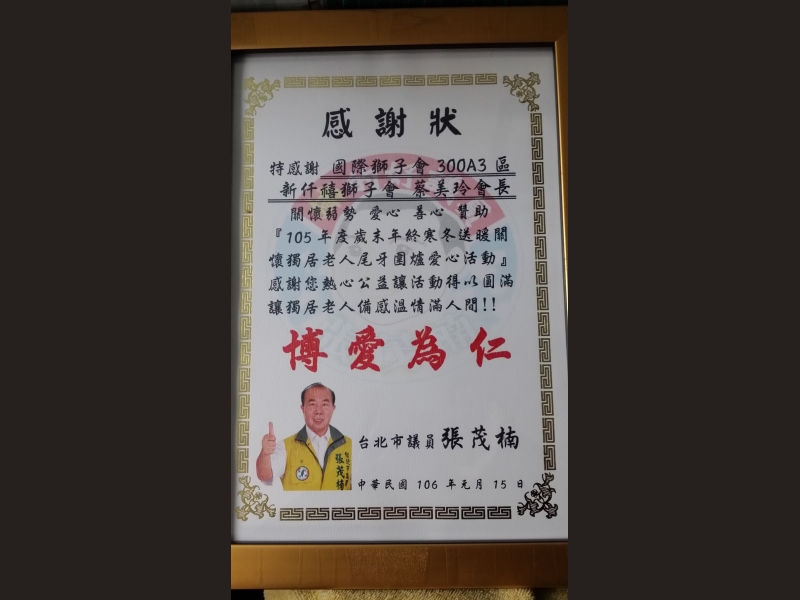 感謝狀
特感謝 國際獅子會300A3區
新仟禧獅子會 蔡美玲會長
關懷弱勢 愛心 善心 贊助
『105年度歲末年終寒冬送暖關
懷獨居老人尾牙圍爐愛心活動』
感謝您熱心公益讓活動得以圓滿
讓獨居老人備感溫情滿人間!!
博愛為仁
台北市議員 張茂楠
張茂楠
中華民國 106 年元月 15 日